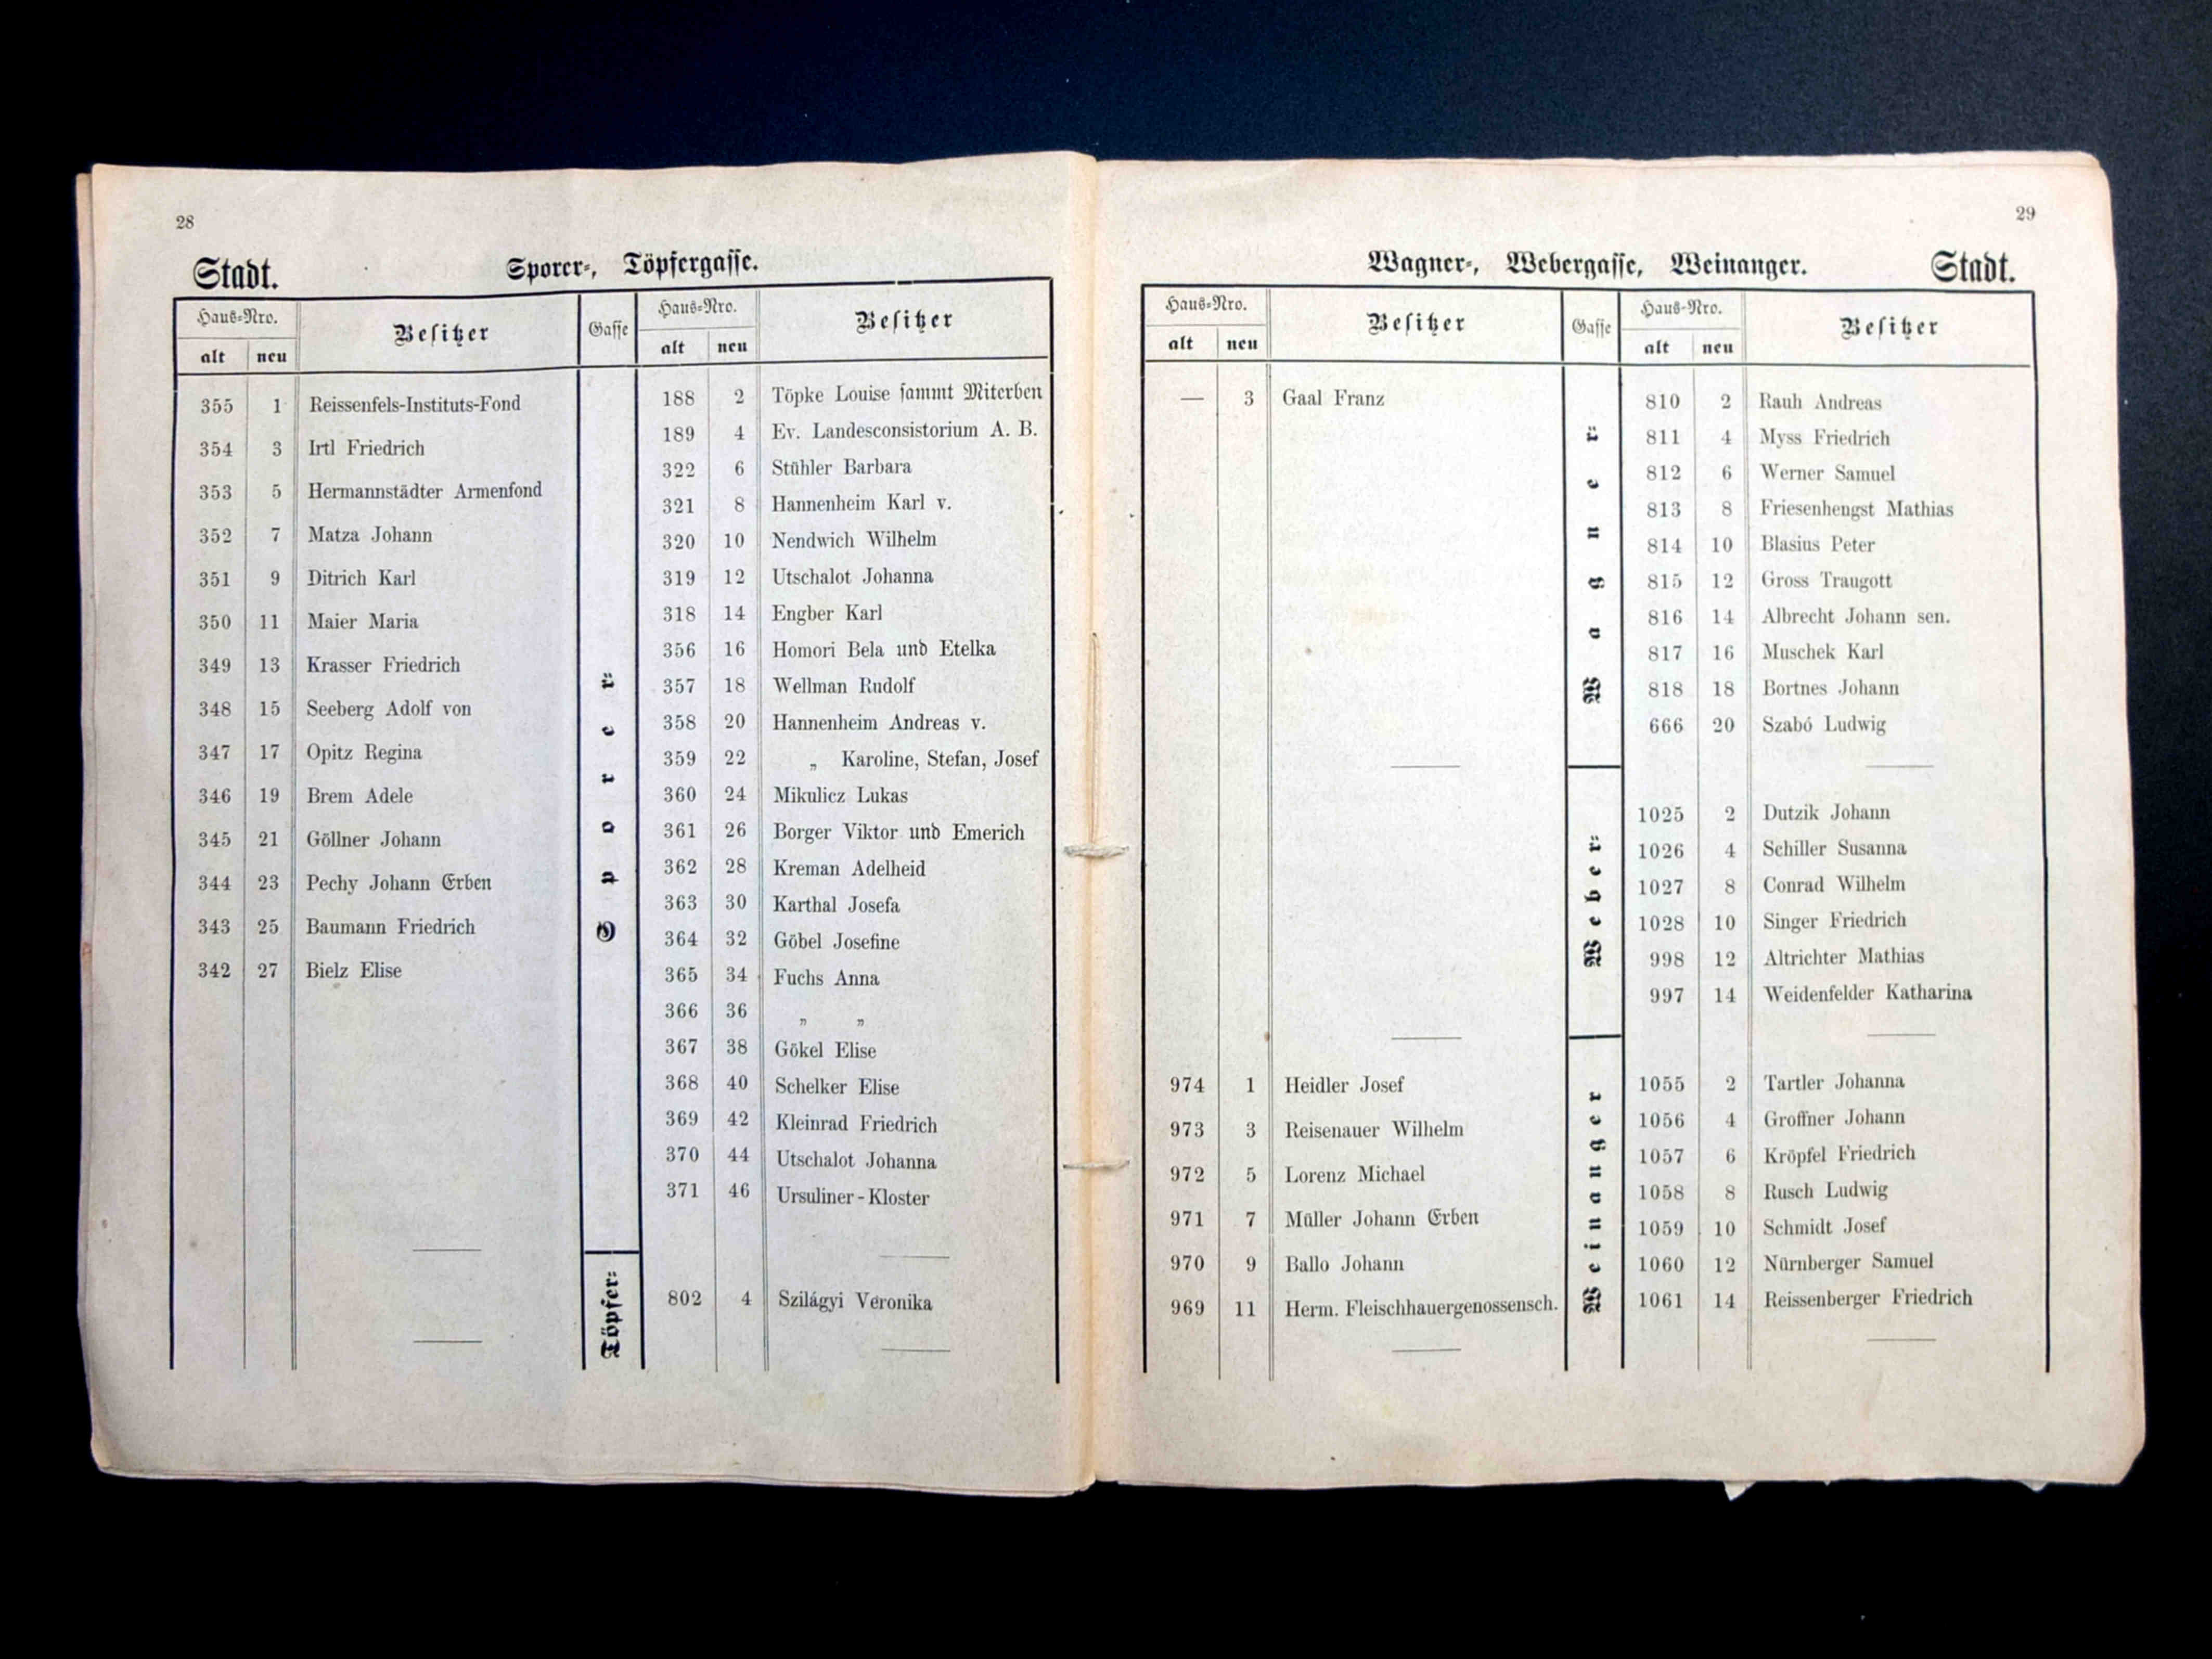 28
Stadt.
Sporer-, Töpfergasse.
Haus-Nro. Besitzer Gasse Haus-Nro. Besitzer
alt neu alt neu
355 1 Reissenfels-Instituts-Fond
354 3 Irtl Friedrich
353 5 Hermannstädter Armenfond
352 7 Matza Johann
351 9 Ditrich Karl
350 11 Maier Maria
349 13 Krasser Friedrich
348 15 Seeberg Adolf von
347 17 Opitz Regina
346 19 Brem Adele
345 21 Göllner Johann
344 23 Pechy Johann Erben
343 25 Baumann Friedrich
342 27 Bielz Elise
Sporer-
188 2 Töpke Louise sammt Miterben
189 4 Ev. Landesconsistorium A. B.
322 6 Stühler Barbara
321 8 Hannenheim Karl v.
320 10 Nendwich Wilhelm
319 12 Utschalot Johanna
318 14 Engber Karl
356 16 Homori Bela und Etelka
357 18 Wellman Rudolf
358 20 Hannenheim Andreas v.
359 22 „ Karoline, Stefan, Josef
360 24 Mikulicz Lukas
361 26 Borger Viktor und Emerich
362 28 Kreman Adelheid
363 30 Karthal Josefa
364 32 Göbel Josefine
365 34 Fuchs Anna
366 36 „ „
367 38 Gökel Elise
368 40 Schelker Elise
369 42 Kleinrad Friedrich
370 44 Utschalot Johanna
371 46 Ursuliner-Kloster
Töpfer-
802 4 Szilágyi Veronika
29
Wagner-, Webergasse, Weinanger.
Stadt.
Haus-Nro. Besitzer Gasse Haus-Nro. Besitzer
alt neu alt neu
— 3 Gaal Franz
Wagner-
810 2 Rauh Andreas
811 4 Myss Friedrich
812 6 Werner Samuel
813 8 Friesenhengst Mathias
814 10 Blasius Peter
815 12 Gross Traugott
816 14 Albrecht Johann sen.
817 16 Muschek Karl
818 18 Bortnes Johann
666 20 Szabó Ludwig
Weber-
1025 2 Dutzik Johann
1026 4 Schiller Susanna
1027 8 Conrad Wilhelm
1028 10 Singer Friedrich
998 12 Altrichter Mathias
997 14 Weidenfelder Katharina
974 1 Heidler Josef
973 3 Reisenauer Wilhelm
972 5 Lorenz Michael
971 7 Müller Johann Erben
970 9 Ballo Johann
969 11 Herm. Fleischhauergenossensch.
Weinanger
1055 2 Tartler Johanna
1056 4 Groffner Johann
1057 6 Kröpfel Friedrich
1058 8 Rusch Ludwig
1059 10 Schmidt Josef
1060 12 Nürnberger Samuel
1061 14 Reissenberger Friedrich